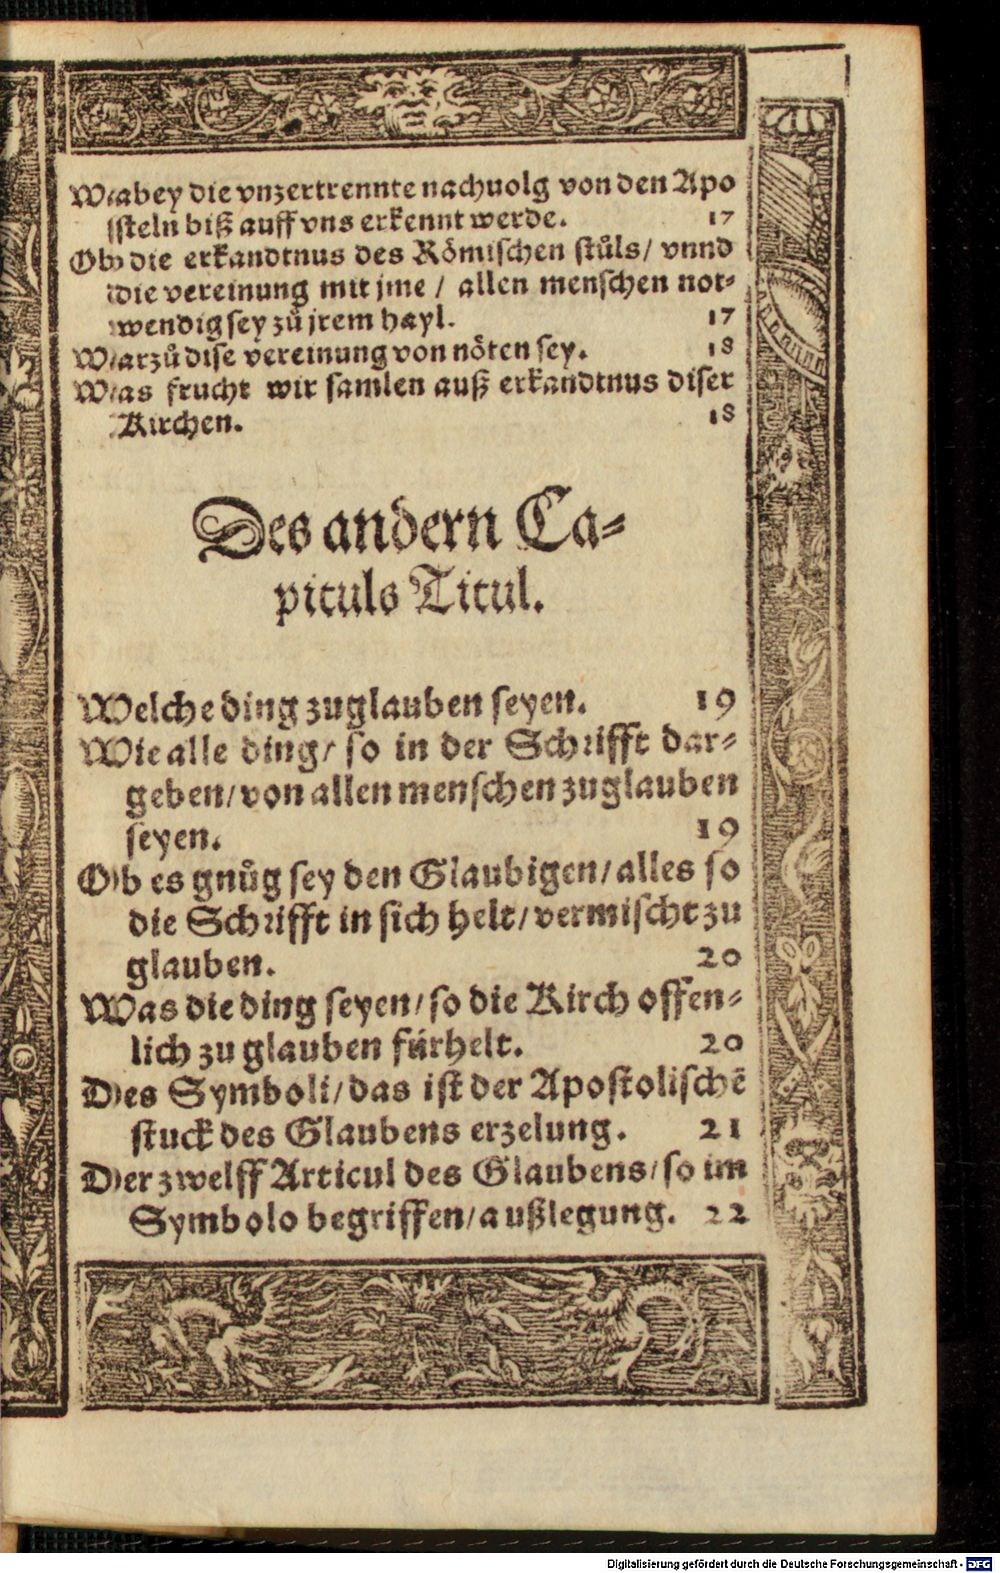 Wabey die vnzertrennte nachuolg von den Apo
steln biß auff vns erkennt werde. 17
Ob die erkandtnus des Römischen stůls/ vnnd
die vereinung mit jme / allen menschen not-
wendig sey zů jrem hayl. 17
Warzů dise vereinung von nöten sey. 18
Was frucht wir samlen auß erkandtnus diser
Kirchen. 18
Des andern Ca-
pituls Titul.
Welche ding zuglauben seyen. 19
Wie alle ding/ so in der Schrifft dar-
geben/ von allen menschen zuglauben
seyen. 19
Ob es gnůg sey den Glaubigen/ alles so
die Schrifft in sich helt/ vermischt zu
glauben. 20
Was die ding seyen/ so die Kirch offen-
lich zu glauben fürhelt. 20
Des Symboli/ das ist der Apostolischē
stuck des Glaubens erzelung. 21
Der zwelff Articul des Glaubens/ so im
Symbolo begriffen/ außlegung. 22
Digitalisierung gefördert durch die Deutsche Forschungsgemeinschaft - DFG